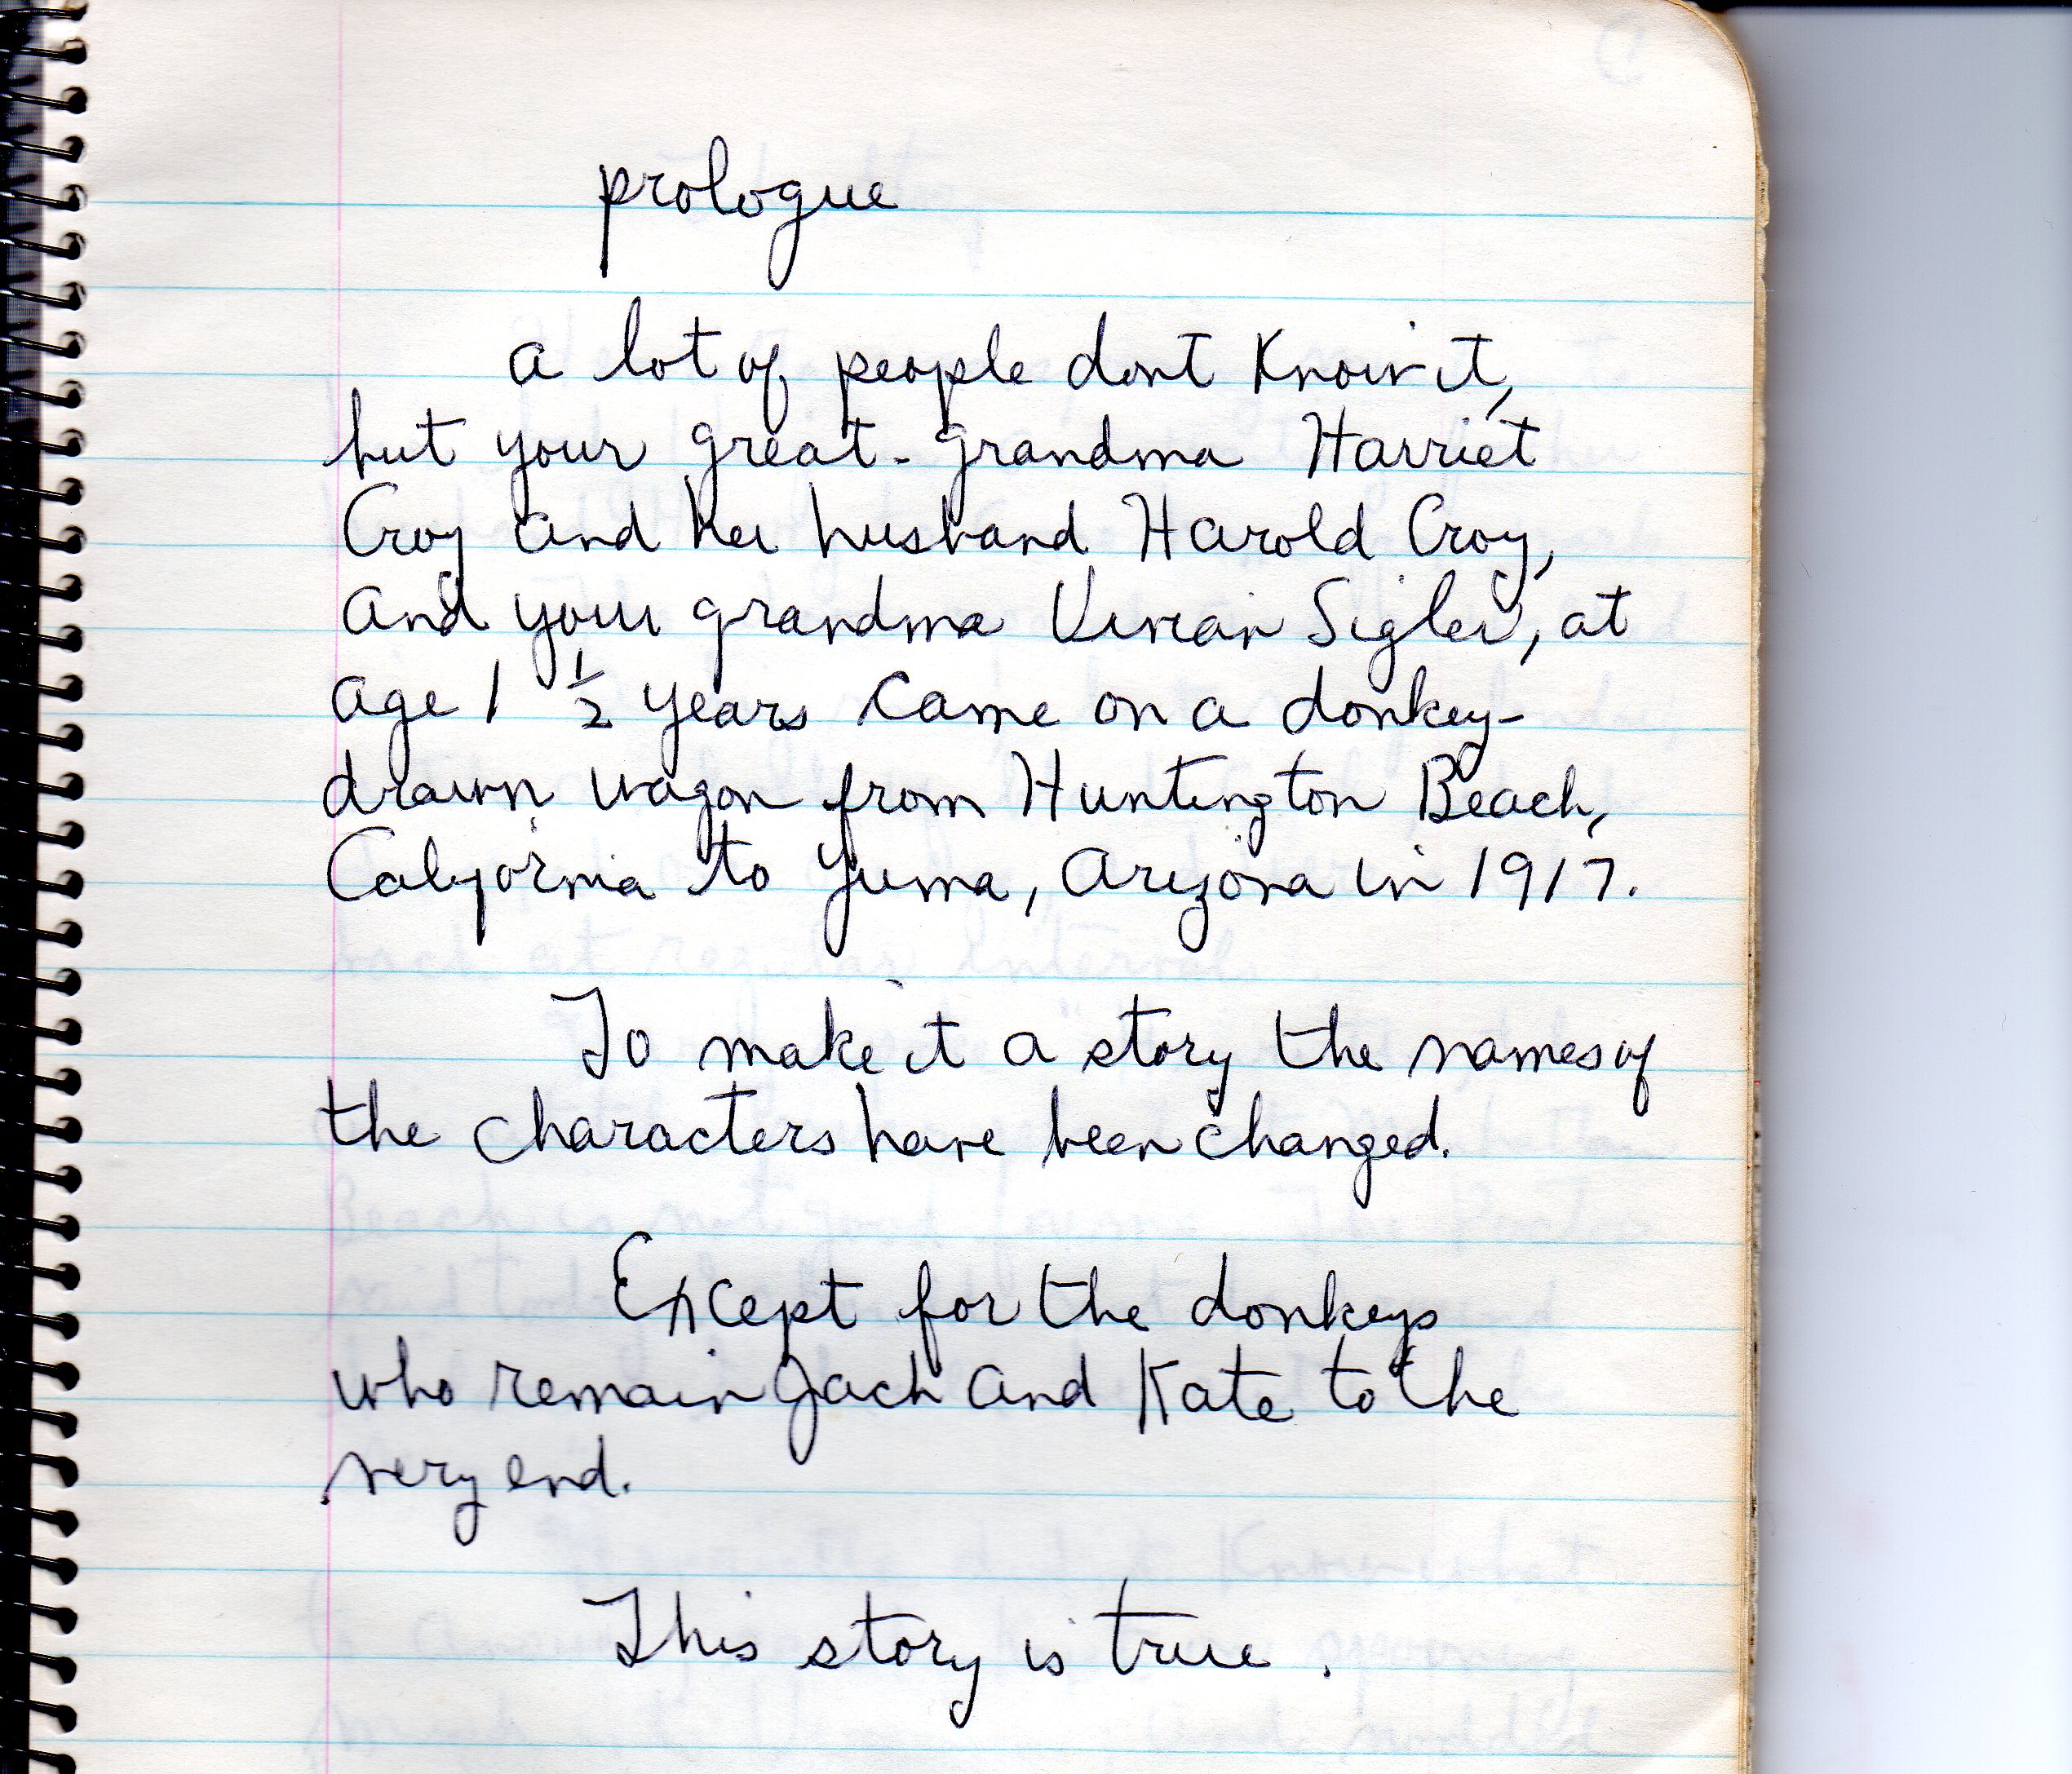 prologue
a lot of people dont know it,
but your great-grandma Harriet
Croy and her husband Harold Croy,
and your grandma Vivian Sigler, at
age 1 ½ years came on a donkey-
drawn wagon from Huntington Beach,
California to Yuma, Arizona in 1917.
To make it a story the names of
the characters have been changed.
Except for the donkeys
who remain Jack and Kate to the
very end.
This story is true.